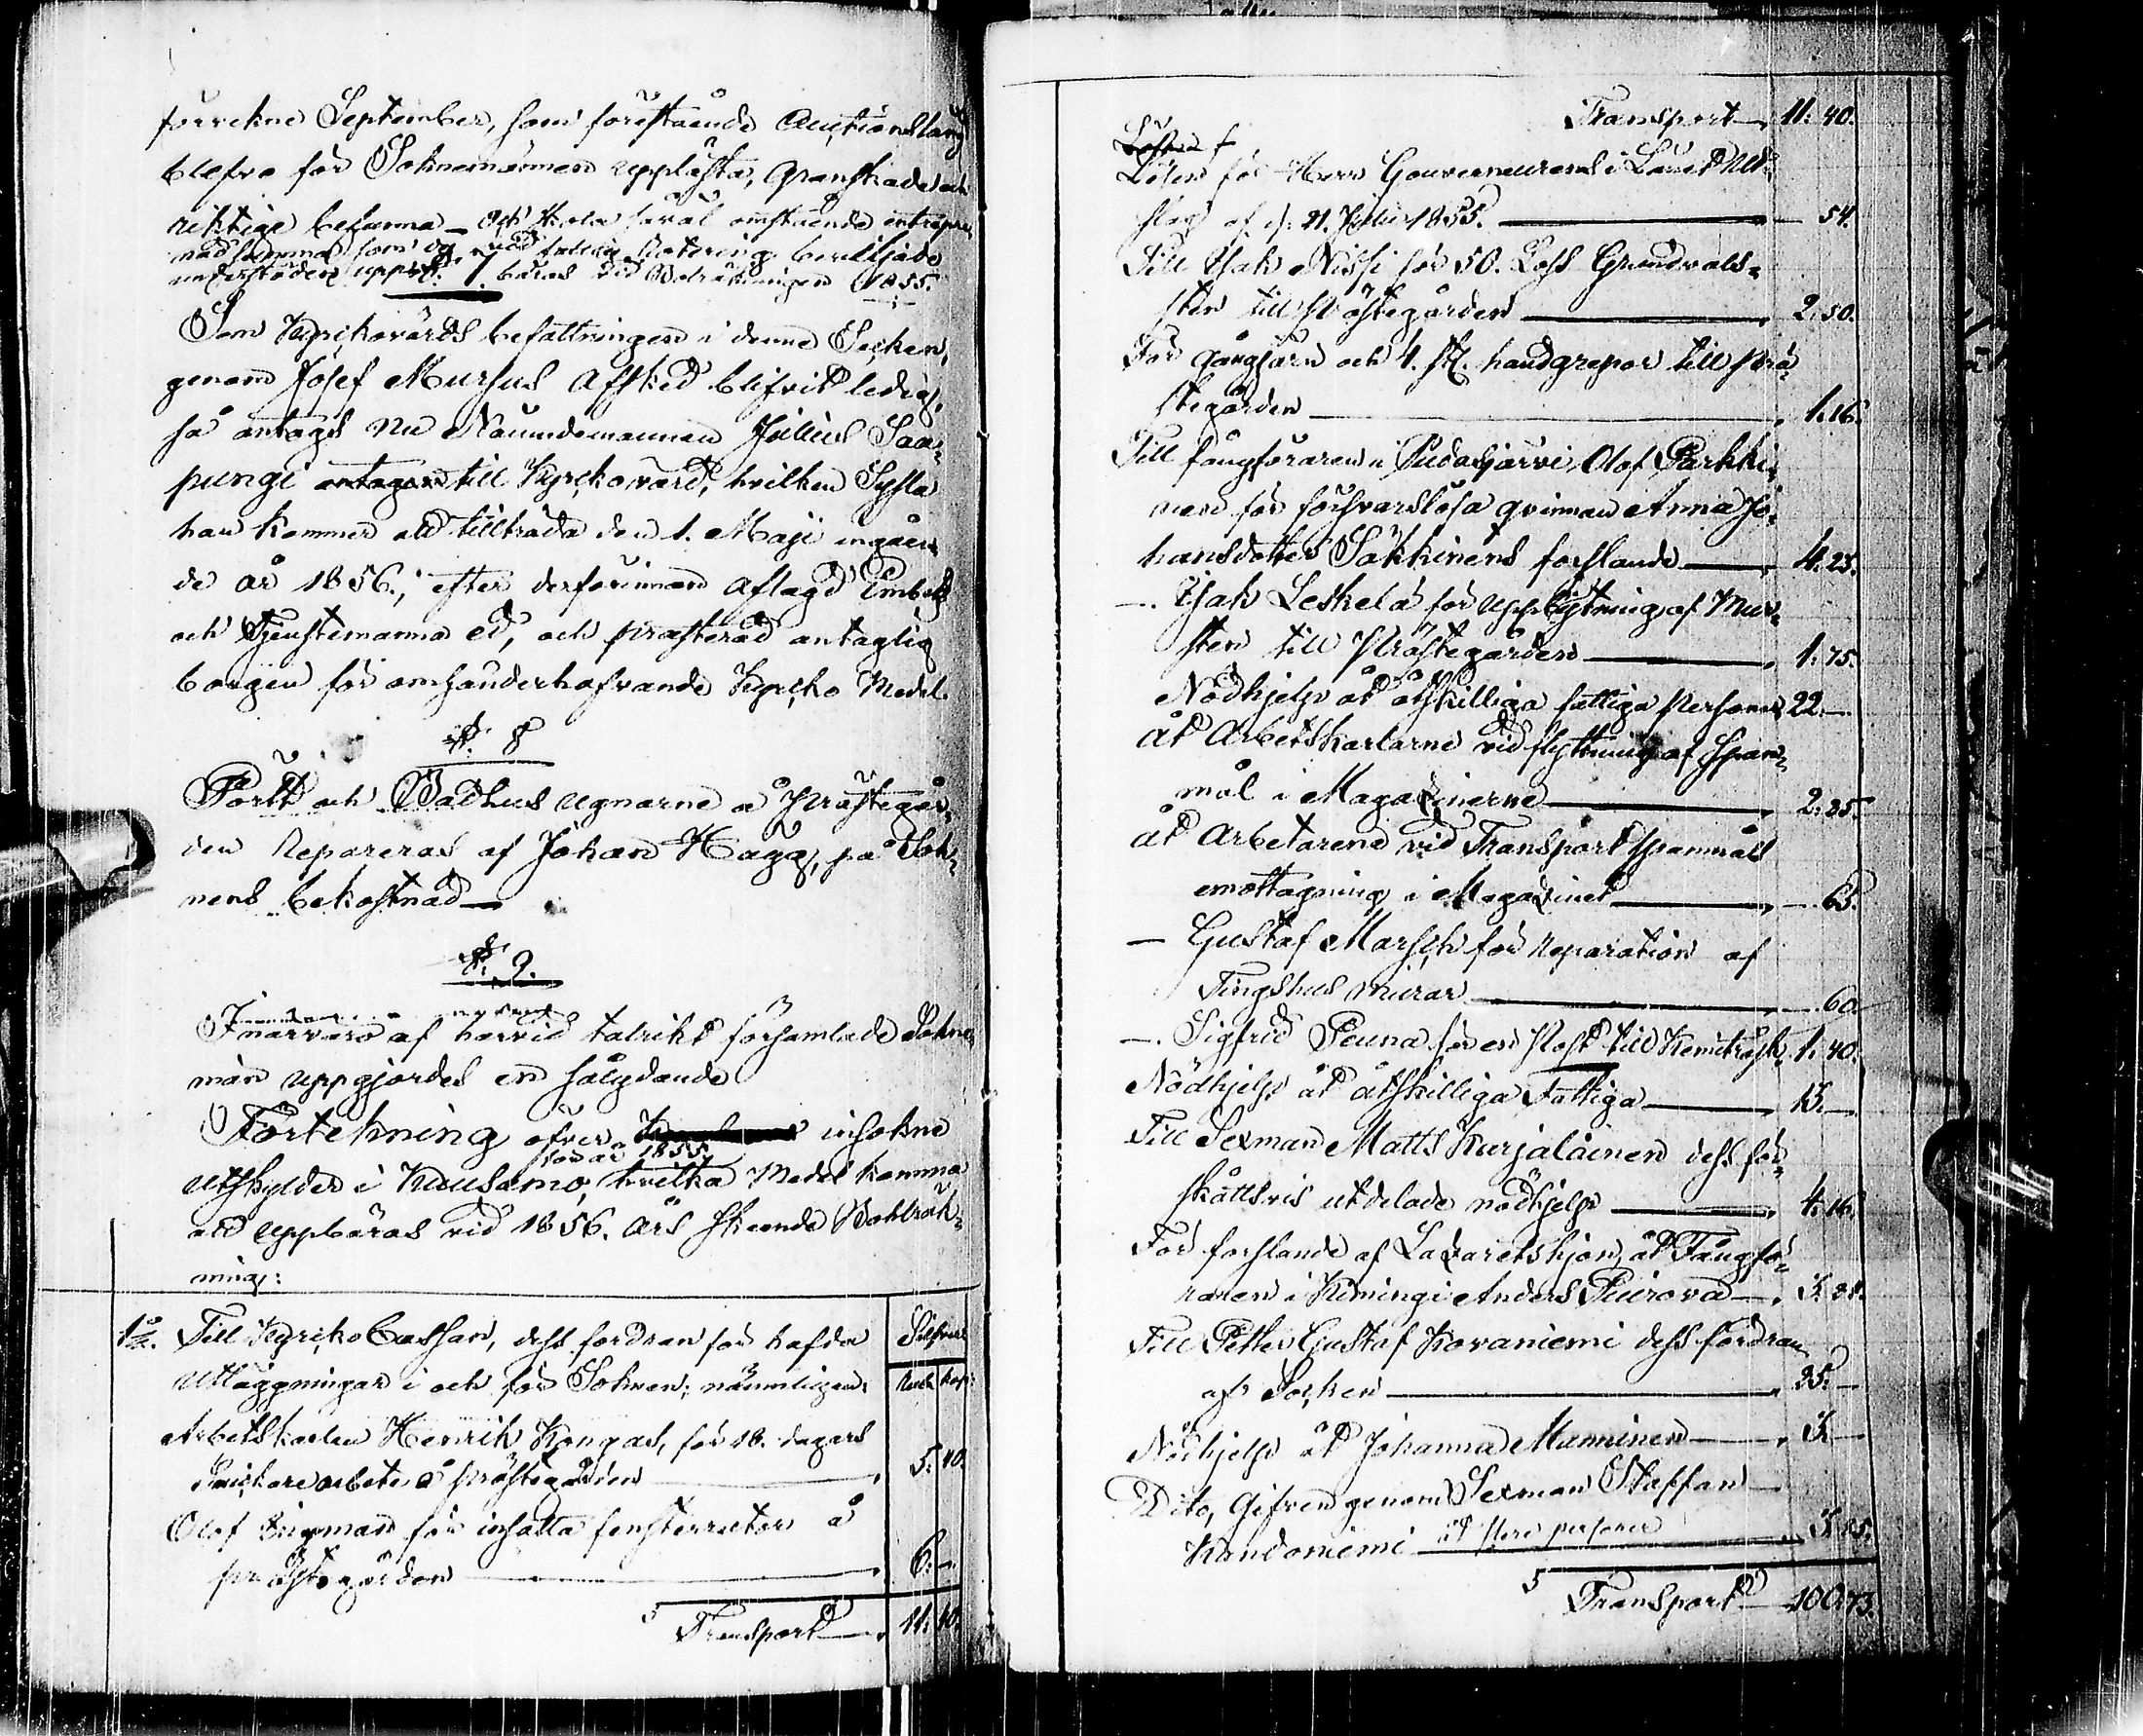 förrekne September, som förestående Auctionslang
blefvo för Soknemännen upplästa, granskade och
riktige befunna — och skola såväl omstående entrepre
nadssumma som og vid Notering beviljade
understöden uppb. bäras vid Bolräkningen 1855.
§. 7.
Som Kyrkovärds befattningen i denne Socken,
genom Josef Mursus afsked blifvit ledig,
så antags nu Nämndemannen Julius Saa-
pungi till Kyrkovärd, hvilken Sysla
han kommer att tillträda den 1. Maji ingåen-
de år 1856., efter derförinnan aflagd Embets
och Tjenstemanna ed, och presterad antaglig
borgen för omhänderhafvande Kyrko Medel.
§. 8
Pört och Badhus ugnarne å Prästegår-
den repareras af Johan Haga, på Sok-
nens bekostnad —
§. 9.
I närvaro af härvid talrikt församlade Sokne
män uppgjordes en sålydande
Förtekning öfver insokne
för år 1855,
utskylder i Kuusamo, hvilka Medel komma
att uppbäras vid 1856. års skeende Bohlräk-
ning:
1o. Till Kyrko Cassan, dess fordran för hafda Silfver
utläggningar i och för Soknen; nämnligen: Rubl. Kop:
Arbetskarlen Henrik Kongas, för 18. dagars
Snickare arbete å prästegården — 5. 40.
Olof Engman för insatta fensterrutor å
prästegården — 6. —
Transport — 11. 40.
Transport — 11. 40.
Lösen för Herr Gouverneurens i Länet Ut-
slag af d. 21. Julii 1855. — 54.
Till Isak Nissi för 50. Lass Grundvals-
sten till Prästegården — 2. 50.
För gångjärn och 4. st. handgrepor till Prä-
stegården — 1. 16.
Till fångföraren i Pudasjärvi, Olof Parkki-
nen för försvarslösa qvinnan Anna Jo-
hansdotter Säkkinens forslande — 4. 25.
— Isak Leskelä för uppbrytning af Mur-
sten till Prästegården — 1. 75.
Nödhjelp åt åtskilliga fattiga Personer 22. —
åt Arbetskarlarne vid flyttning af Span-
mål i Magazinerne — 2. 25.
åt Arbetarene vid Transport spannmåls
emottagning i Magazinet — 63.
— Gustaf Marsch för reparation af
Tingshus murar — 60
— Sigfrid Peuna för en Post till Kemiträsk, 1. 40.
Nödhjelp åt åtskilliga fattiga — 15. —
Till Sexman Matts Karjalainen dess för-
skåttsvis utdelade nödhjelp — 4. 16.
För forslande af Lazaretshjon, åt Fångfö-
raren i Kimingi Anders Puirova —
Till Petter Gustaf Kovaniemi dess fordran
af Socken — 25. —
Nödhjelp åt Johanna Manninen — 3. —
Dito, gifven genom Sexman Staffan
Kandoniemi åt flere personer
Transport — 100. 73.